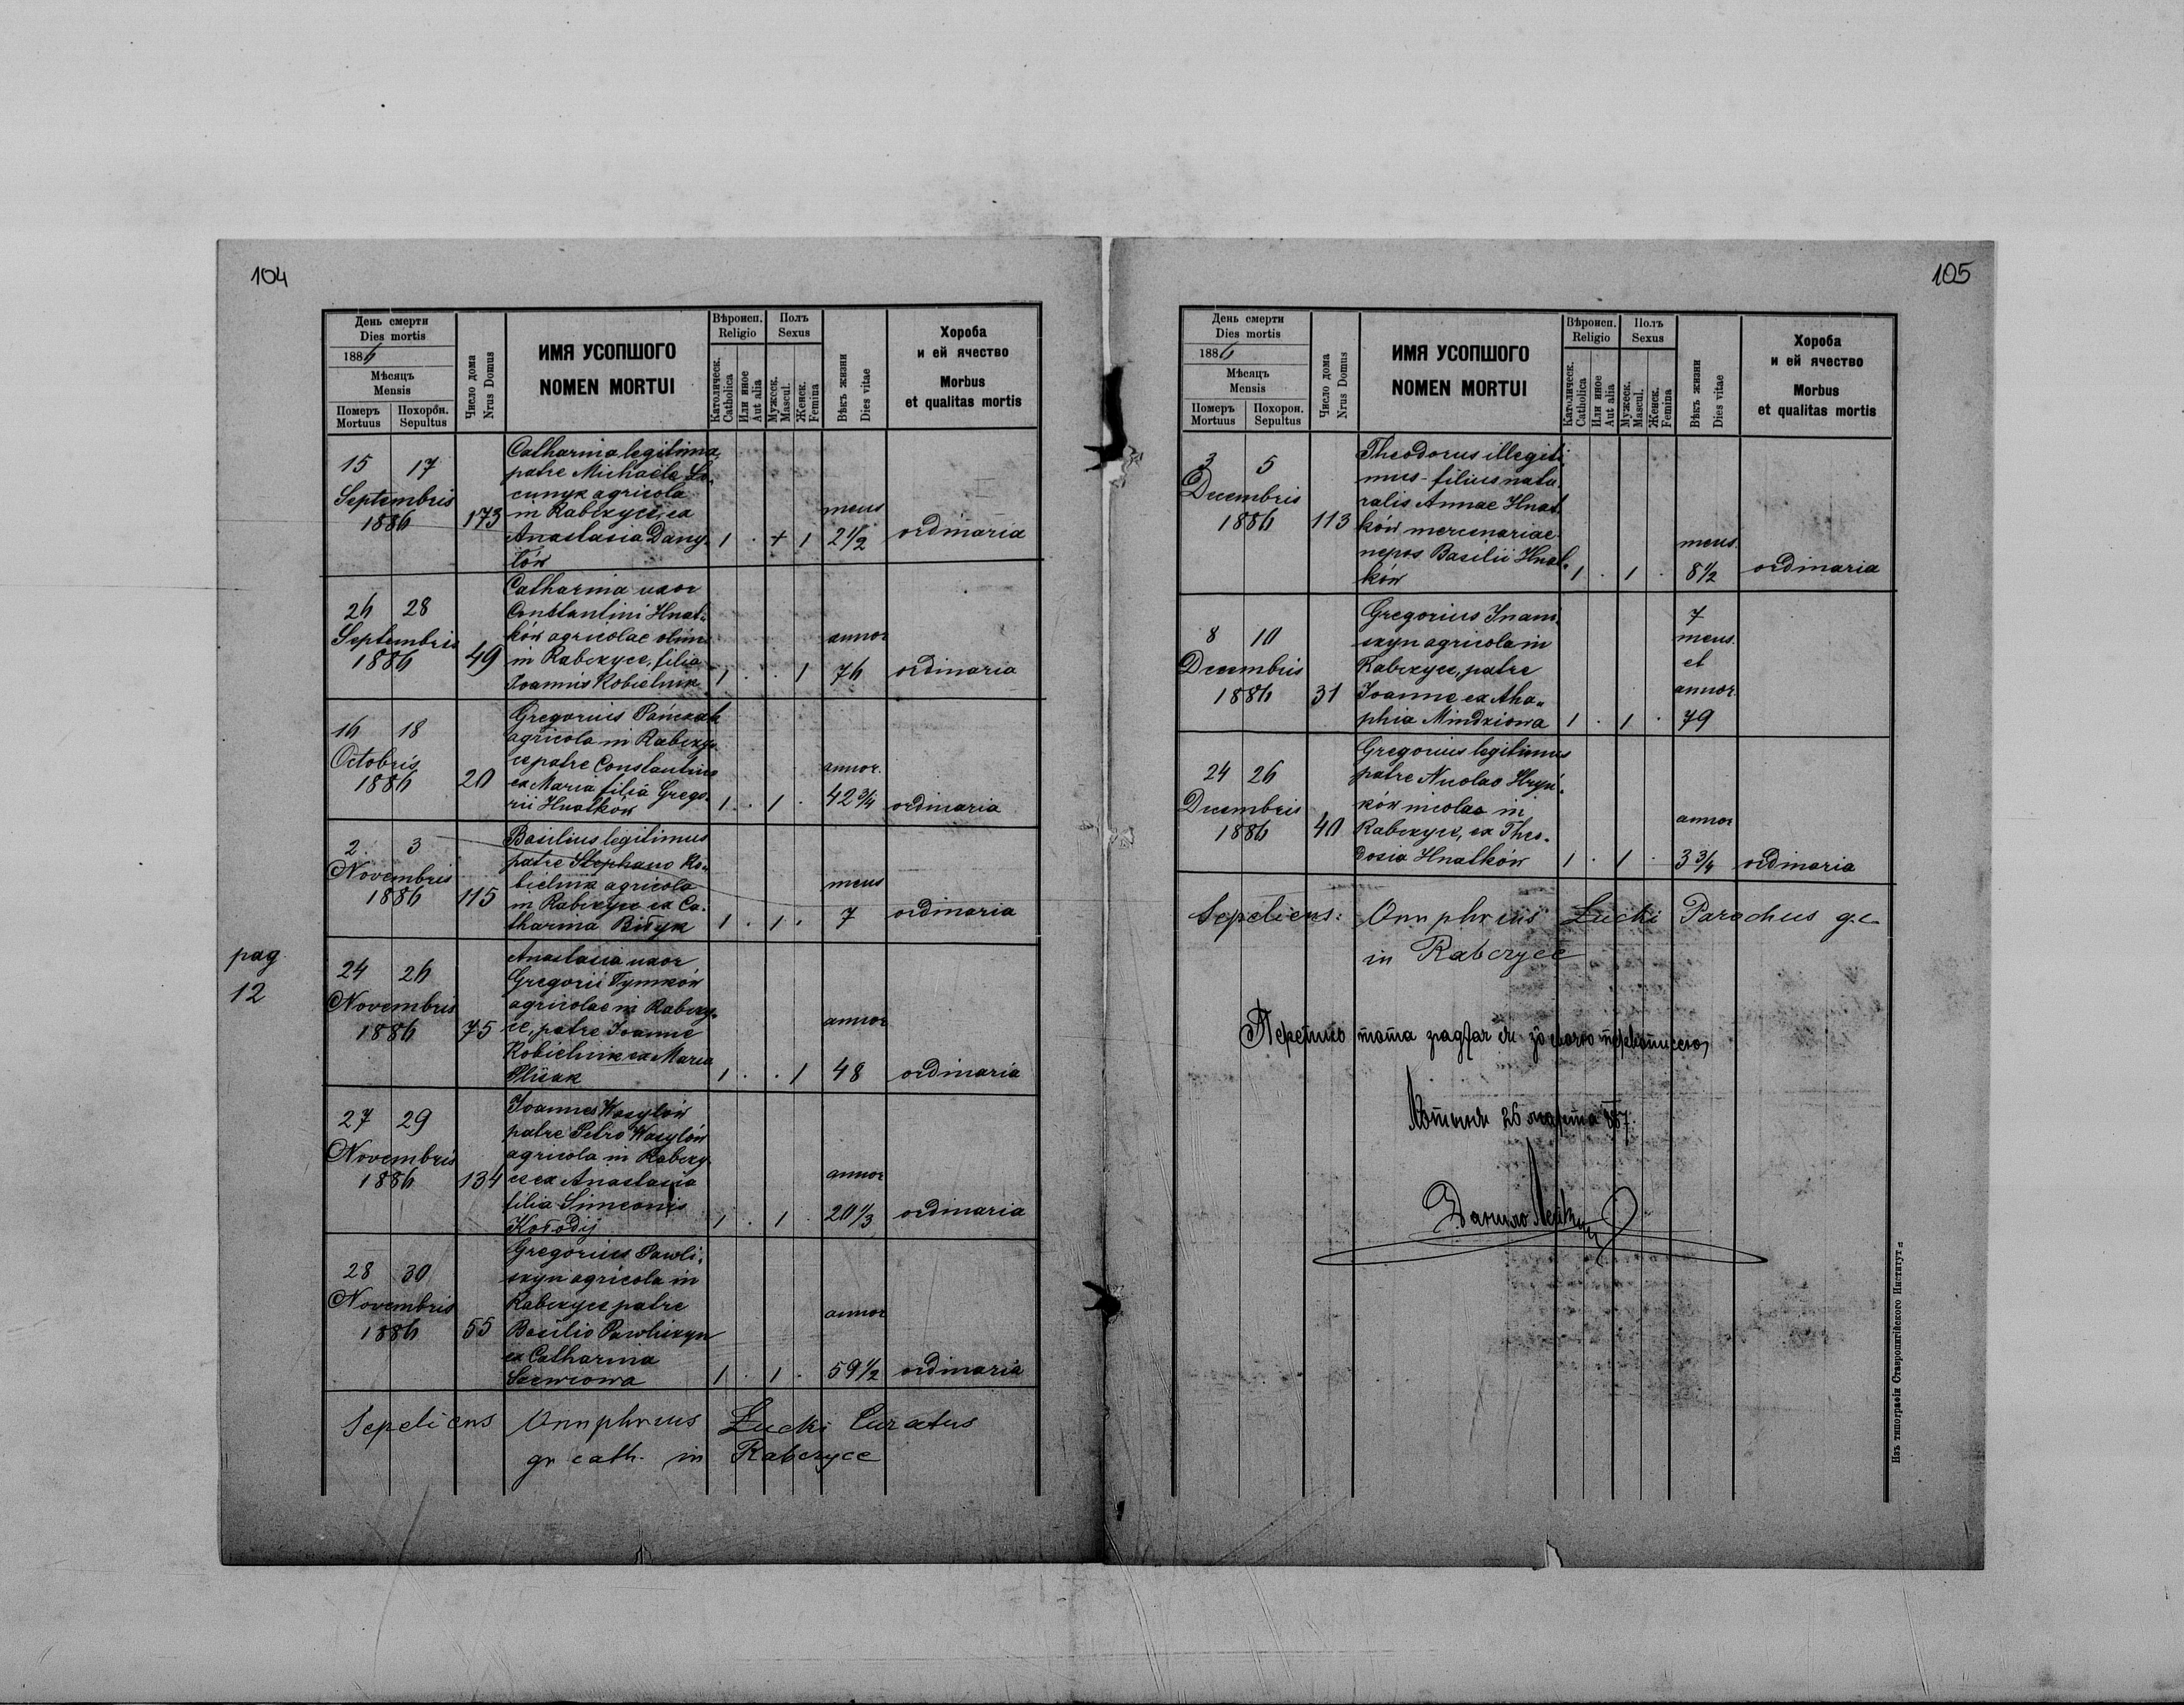 104
День смерти
Dies mortis
1886
Мѣсяцъ
Mensis
Померъ
Mortuus
Похорон.
Sepultus
Число дома
Nrus Domus
ИМЯ УСОПШОГО
NOMEN MORTUI
Вѣроисп.
Religio
Католическ.
Catholica
Или иное
Aut alia
Полъ
Sexus
Мужеск.
Mascul.
Женск.
Femina
Вѣкъ жизни
Dies vitae
Хороба
и ей ячество
Morbus
et qualitas mortis
15 17
Septembris
1886 173
Catharina legitima
patre Michaële
agricola
in Rabczyce, ex
Anastasia Dany-
łów
1 . + 1
mens
2 1/2
ordinaria
26 28
Septembris
1886 49
Catharina uxor
Constantini Hnat-
ków agricolae olim
in Rabczyce, filia
Joannis Kobielnik
1 . . 1
annor
76
ordinaria
16 18
Octobris
1886 20
Gregorius Pańczak
agricola in Rabczy-
ce patre Constantino
ex Maria filia Grego-
rii Hnatków
1 . 1 .
annor.
42 3/4
ordinaria
2. 3
Novembris
1886 115
Basilius legitimus
patre Stephano Ko-
bielnik agricola
in Rabczyce ex Ca-
tharina Biłyk
1 . 1 .
mens
7
ordinaria
pag
12
24 26
Novembris
1886 75
Anastasia uxor
Gregorii Tymków
agricolae in Rabczy-
ce, patre Joanne
Kobielnik ex Maria
1 . . 1
annor
48
ordinaria
27 29
Novembris
1886 134
Joannes Wasylów
patre Petro Wasylów
agricola in Rabczy-
ce ex Anastasia
filia Simeonis
Kołodij
1 . 1 .
annor
20 1/3
ordinaria
28 30
Novembris
1886 55
Gregorius Pawli-
szyn agricola in
Rabczyce patre
Basilio Pawliszyn
ex Catharina
1 . 1 .
annor
59 1/2
ordinaria
Sepeliens Onuphrius Łucki Curatus
gr cath. in Rabczyce
105
День смерти
Dies mortis
1886
Мѣсяцъ
Mensis
Померъ
Mortuus
Похорон.
Sepultus
Число дома
Nrus Domus
ИМЯ УСОПШОГО
NOMEN MORTUI
Вѣроисп.
Religio
Католическ.
Catholica
Или иное
Aut alia
Полъ
Sexus
Мужеск.
Mascul.
Женск.
Femina
Вѣкъ жизни
Dies vitae
Хороба
и ей ячество
Morbus
et qualitas mortis
3 5
Decembris
1886 113
Theodorus illegiti-
mus - filius natu-
ralis Annae Hnat-
ków mercenariae
nepos Basilii Hnat-
ków
1 . 1 .
mens.
8 1/2
ordinaria
8 10
Decembris
1886 31
Gregorius
agricola in
Rabczyce, patre
Joanne ex Aha-
phia Mindziowa
1 . 1 .
7
mens.
et
annor.
79
24 26
Decembris
1886 40
Gregorius legitimus
patre Nicolao Hryń-
ków in
Rabczyce, ex Theo-
dosia Hnatków
1 . 1 .
annor
3 3/4
ordinaria
Sepeliens: Onuphrius Łucki Parochus g.c
in Rabczyce
26 марта 887.
Данило
Изъ типографіи Ставропигійского Институт